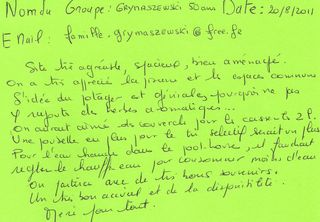 Nom du Groupe: GRYMASZEWSKI Soam Date: 20/8/2011
E Mail: famille.grymaszewski@free.fr
Site très agréable, spacieux, bien aménagé.
On a très apprécié la piscine et les espaces communs
L'idée du potager est géniale, pourquoi ne pas
y rajouter des herbes aromatiques...
On aurait aimé des couvercles pour les casseroles
Une poubelle en plus pour le tri sélectif serait un plus
Pour l'eau chaude dans le pool house, il faudrait
régler le chauffe eau pour consommer moins d'eau
On partira avec de très bons souvenirs.
Un très bon accueil et de la disponibilité.
Merci pour tout.